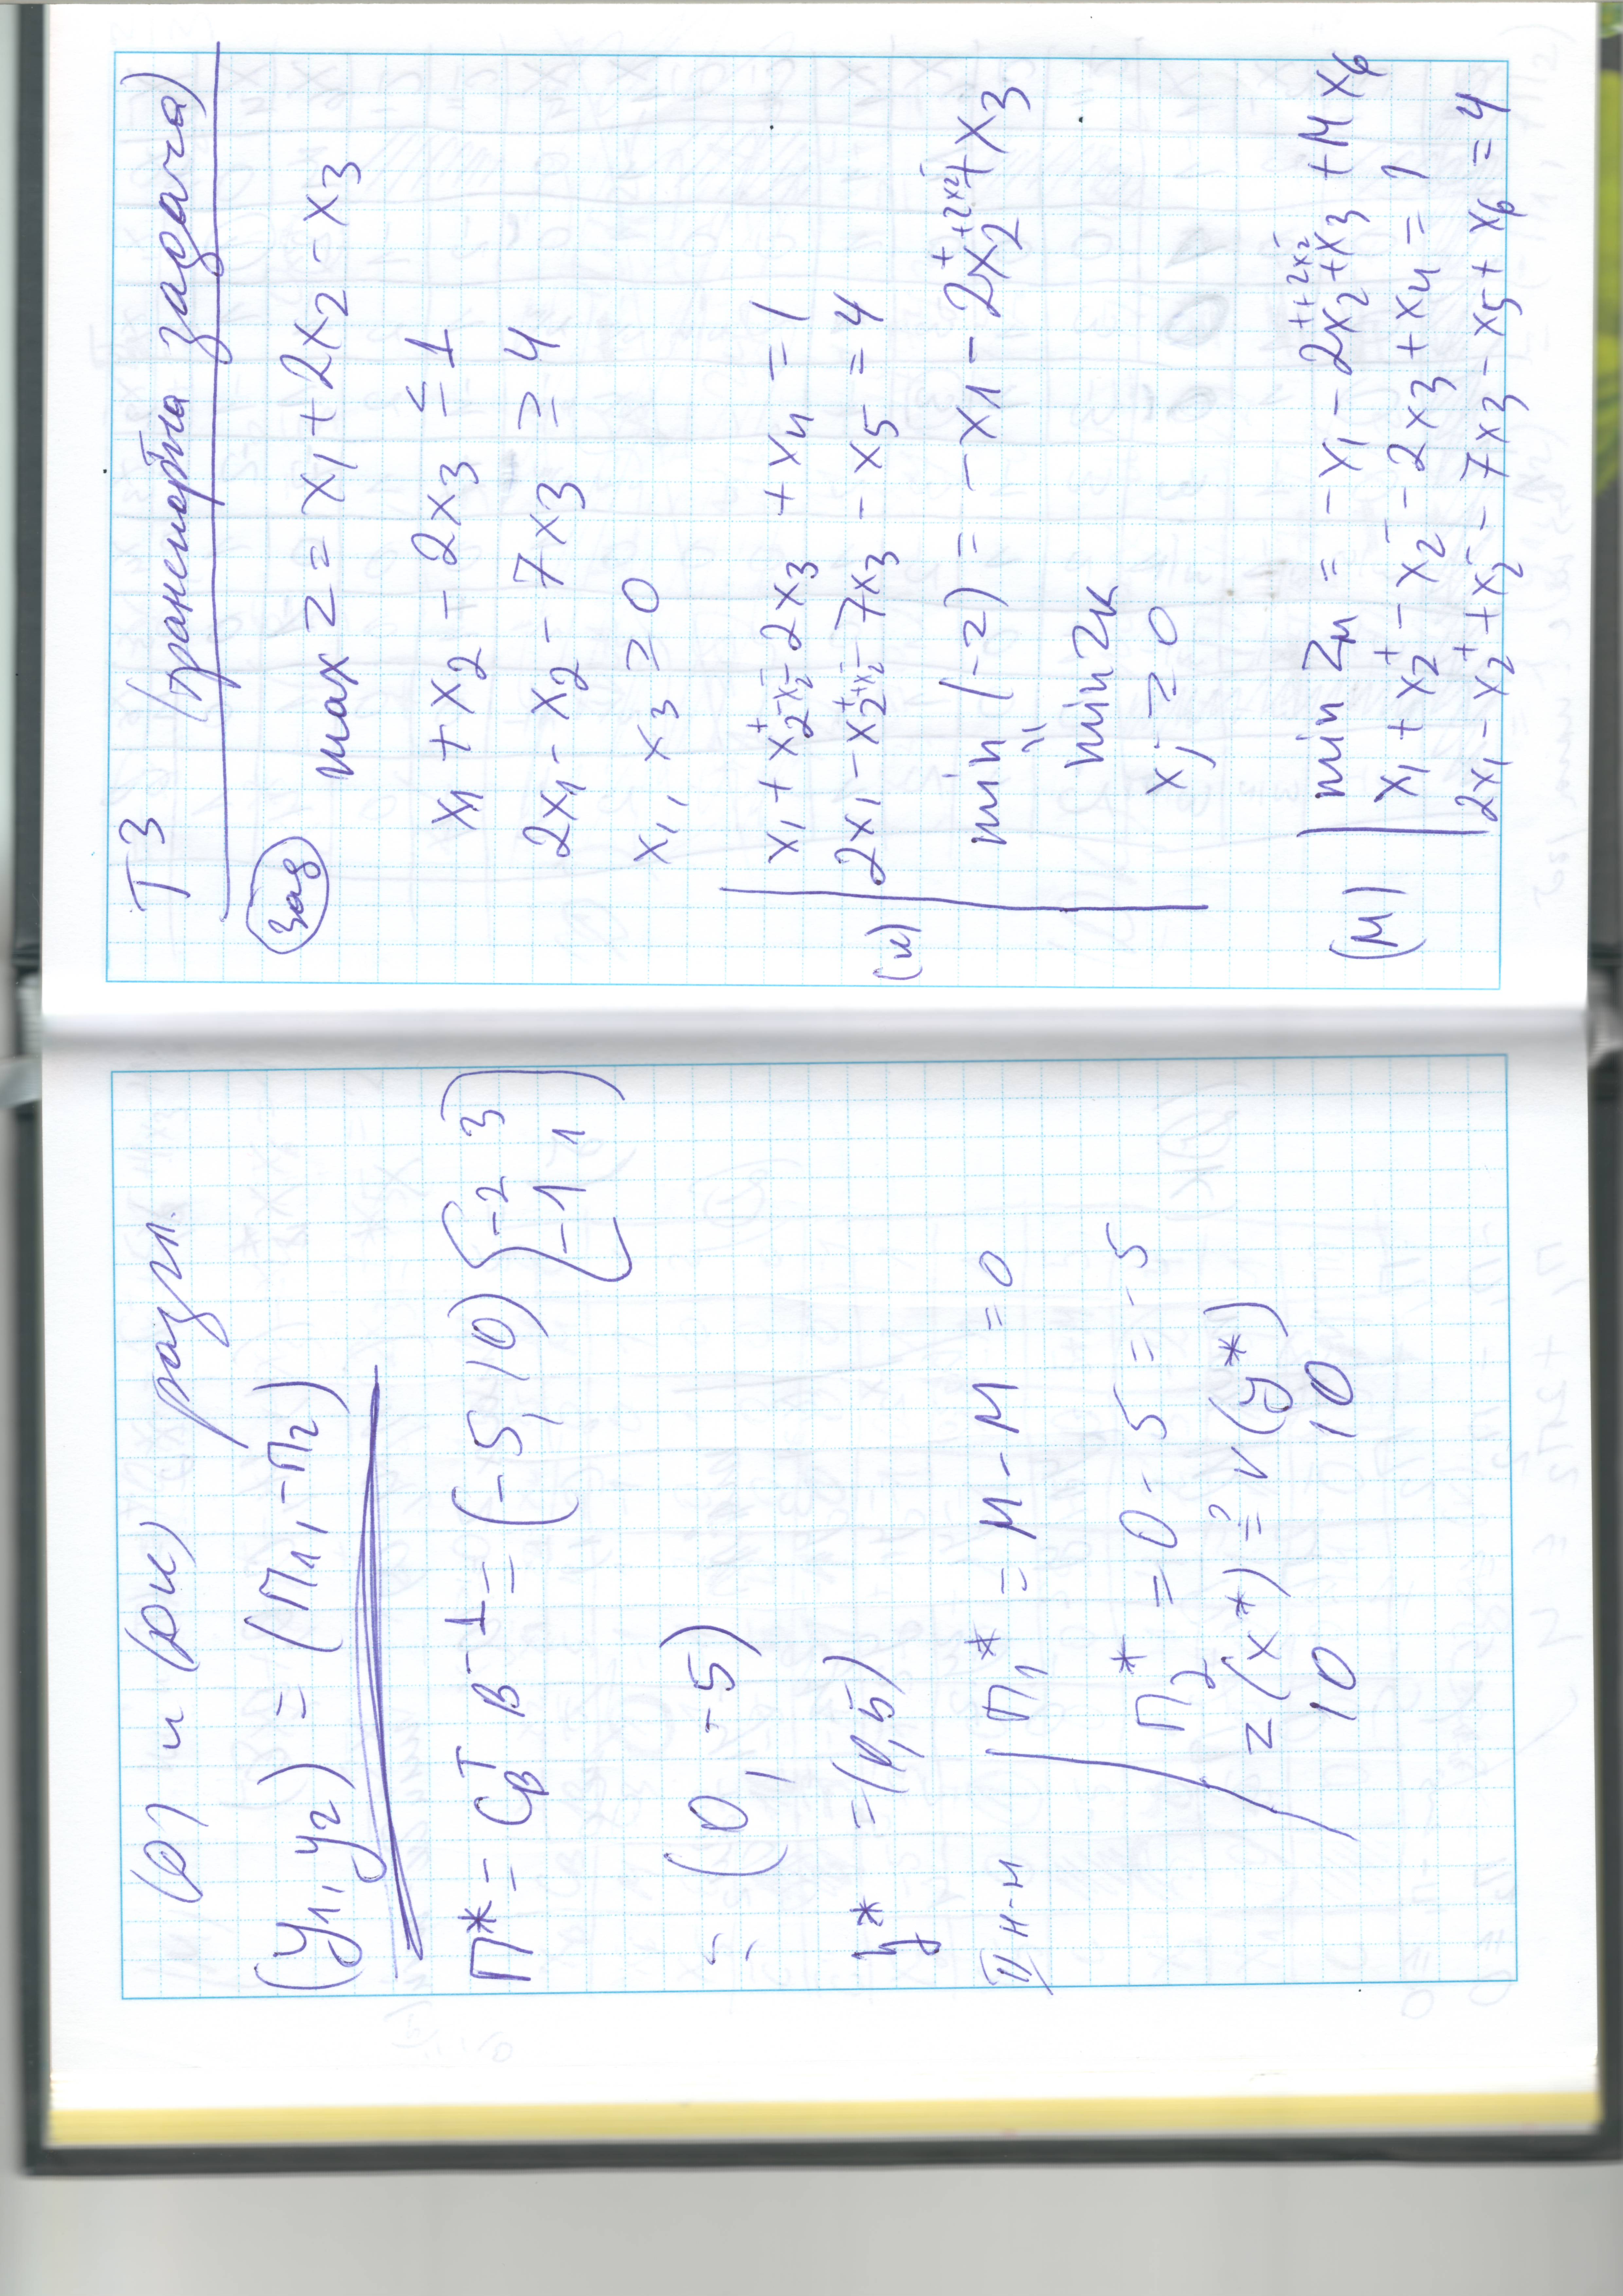 (y₁, y₂) = (π₁, -π₂)
π* = C_B^T B⁻¹ = (-5, 10) [-2 3
-1 1]
= (0, -5)
y* = (0, 5)
II н-н | π₁* = M - M = 0
π₂* = 0 - 5 = -5
z(x*) ≟ v(y*)
10 10
ТЗ (транспортна задача)
зад
max z = x₁ + 2x₂ - x₃
x₁ + x₂ - 2x₃ ≤ 1
2x₁ - x₂ - 7x₃ ≥ 4
x₁, x₃ ≥ 0
x₁ + x₂⁺ - x₂⁻ - 2x₃ + x₄ = 1
(к) 2x₁ - x₂⁺ + x₂⁻ - 7x₃ - x₅ = 4
min (-z) = -x₁ - 2x₂⁺ + 2x₂⁻ + x₃
"
min zк
xⱼ ≥ 0
(M) min zм = -x₁ - 2x₂⁺ + 2x₂⁻ + x₃ + M x₆
x₁ + x₂⁺ - x₂⁻ - 2x₃ + x₄ = 1
2x₁ - x₂⁺ + x₂⁻ - 7x₃ - x₅ + x₆ = 4